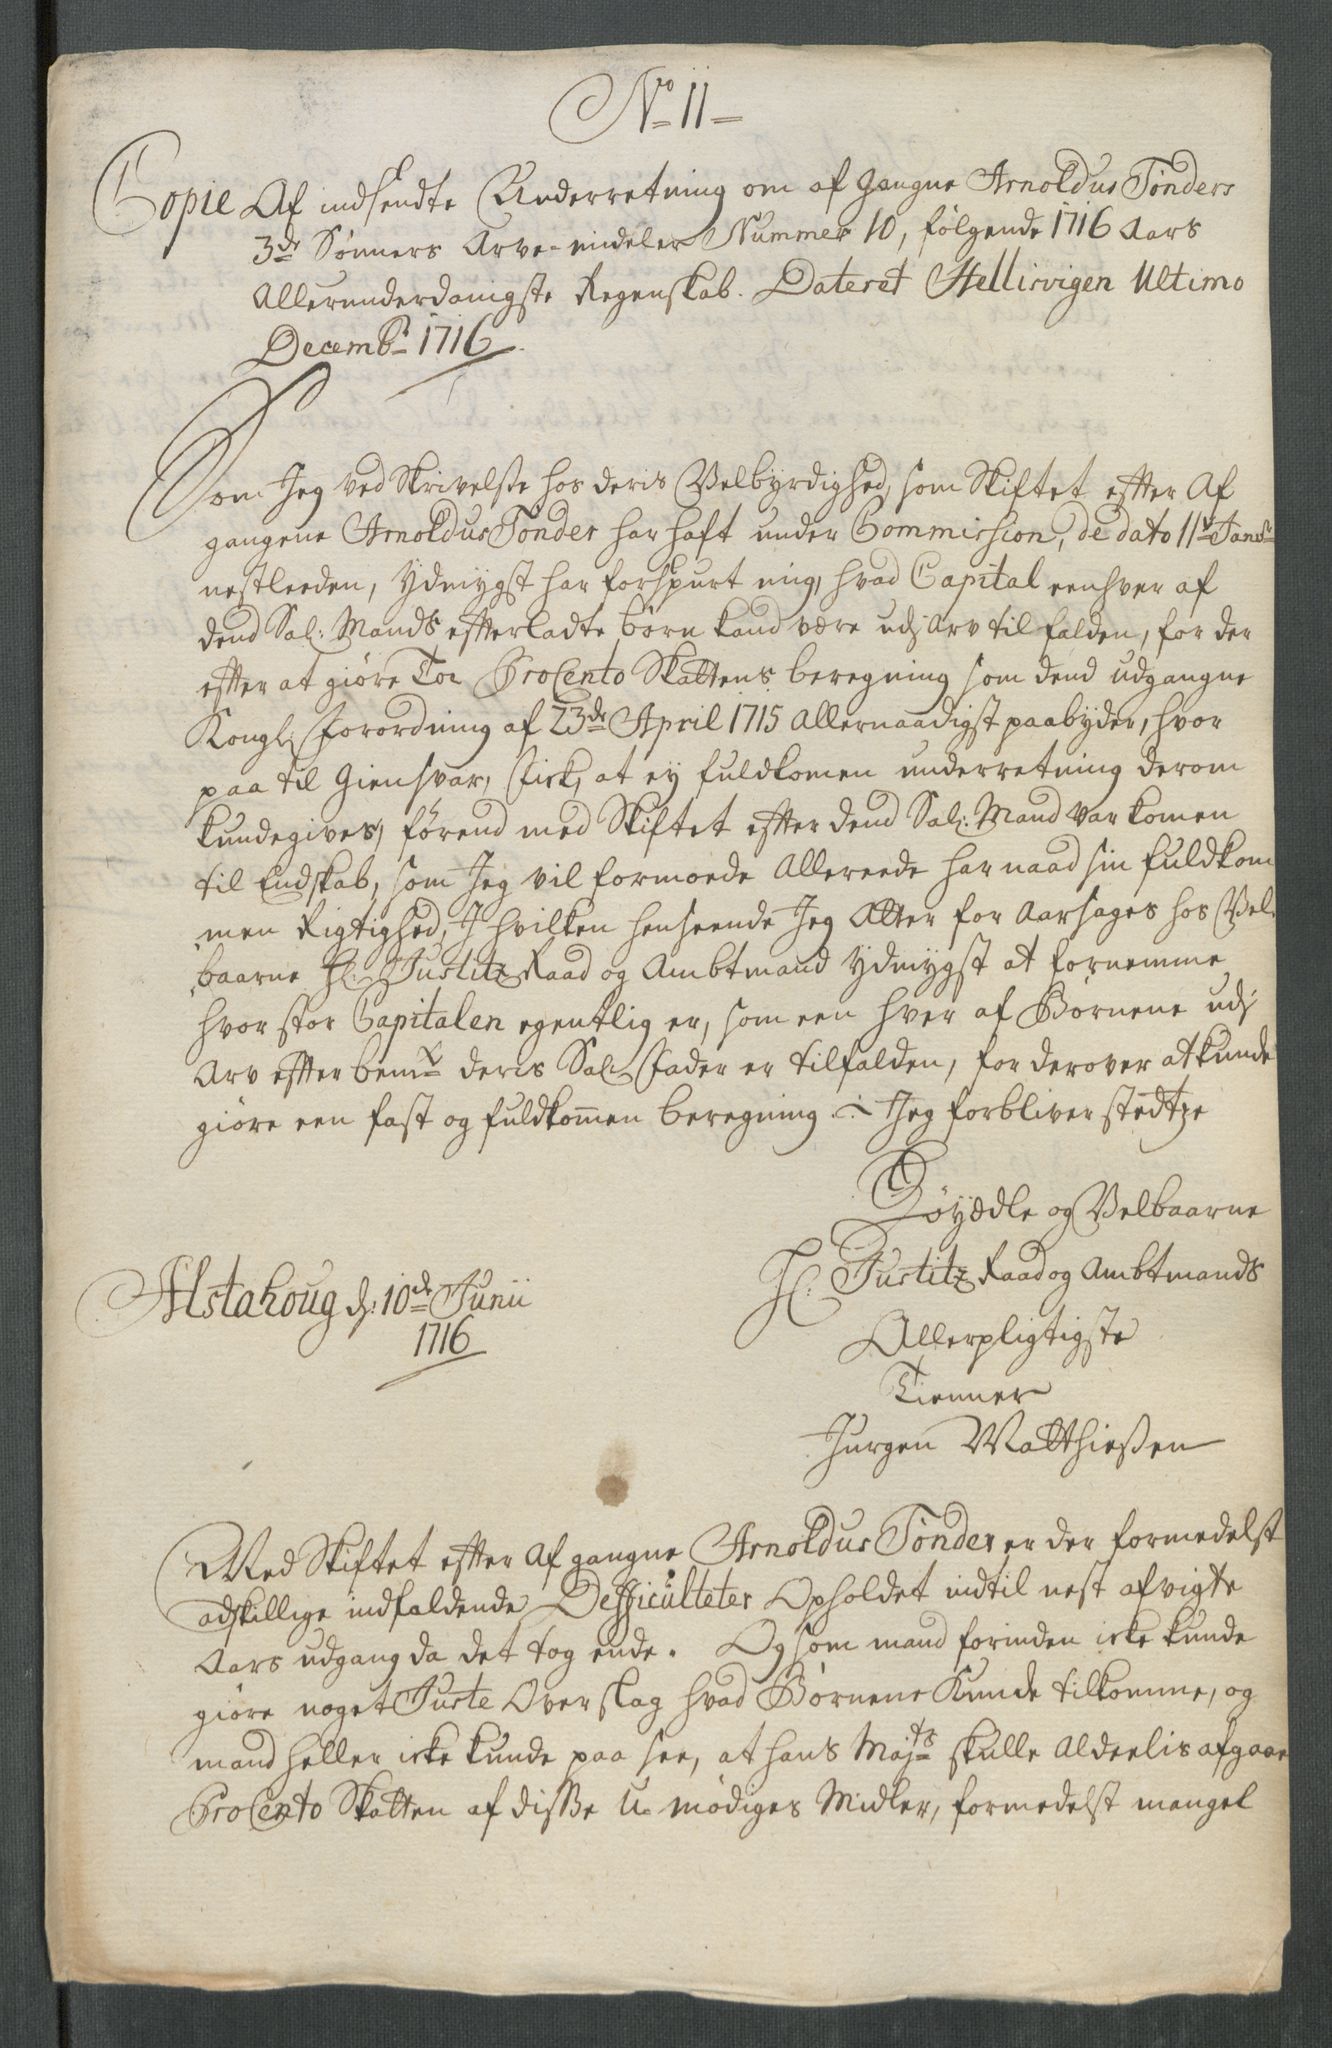 No 11
Copie Af indsendte Underretning om afgangne Arnoldus Tønders
3de Sønners Arve-mideler Nummer 10, følgende 1716 Aars
Allerunderdanigste Regenskab. Dateret Hellisvigen Ultimo
Decembr 1716
Som Jeg ved Skrivelse hos deris Velbyrdighed, som Skiftet effter Af
gangene Arnoldus Tønder har haft under Commission, de dato 11te Janr
nestleeden, Ydmygst har forspurt mig, hvad Capital eenhver af
dend Sal: Mands efterladte børn kand være udj Arv tilfalden, for der
effter at giøre Toe ProCento Skattens beregning som dend udgangne
Kongl: Forordning af 23de April 1715 Allernaadigst paabyder, hvor
paa til Giensvar, Fick, at ey fuldkomen underretning derom
kundegives, førend med Skiftet effter dend Sal: Mand var komen
til Endskab, som Jeg vil formoede Allereede har naad sin fuldkom
men Rigtighed, J hvilken henseende Jeg Atter for Aarsages hos Vel
baarne Hr: Justitz Raad og Ambtmand Ydmygst at fornemme
hvor stor Capitalen egentlig er, som een hver af Børnene udj
Arv effter bemte deris Sal: Fader er tilfalden, for derover at kunde
giøre een fast og fuldkommen beregning :/: Jeg forbliver stedtze
Höyædle og Velbaarne
Hr: Justitz Raad og Ambtmands
Allerpligtigste
Tienner
Jurgen Matthiesen
Alstahoug d: 10de Junii
1716
Med Skiftet effter Af gangne Arnoldus Tønder er der formedelst
adskillige indfaldende Defficulteter Opholdet indtil nest afvigte
Aars udgang da det tog ende. Og som mand forinden icke kunde
giøre noget Juste Overslag hvad Børnene kunde tilkomme, og
mand heller icke kunde paa see, at hans Majts skulle Aldeelis afgaae
ProCento Skatten af disse U-mødiges Midler, formedelst mangel